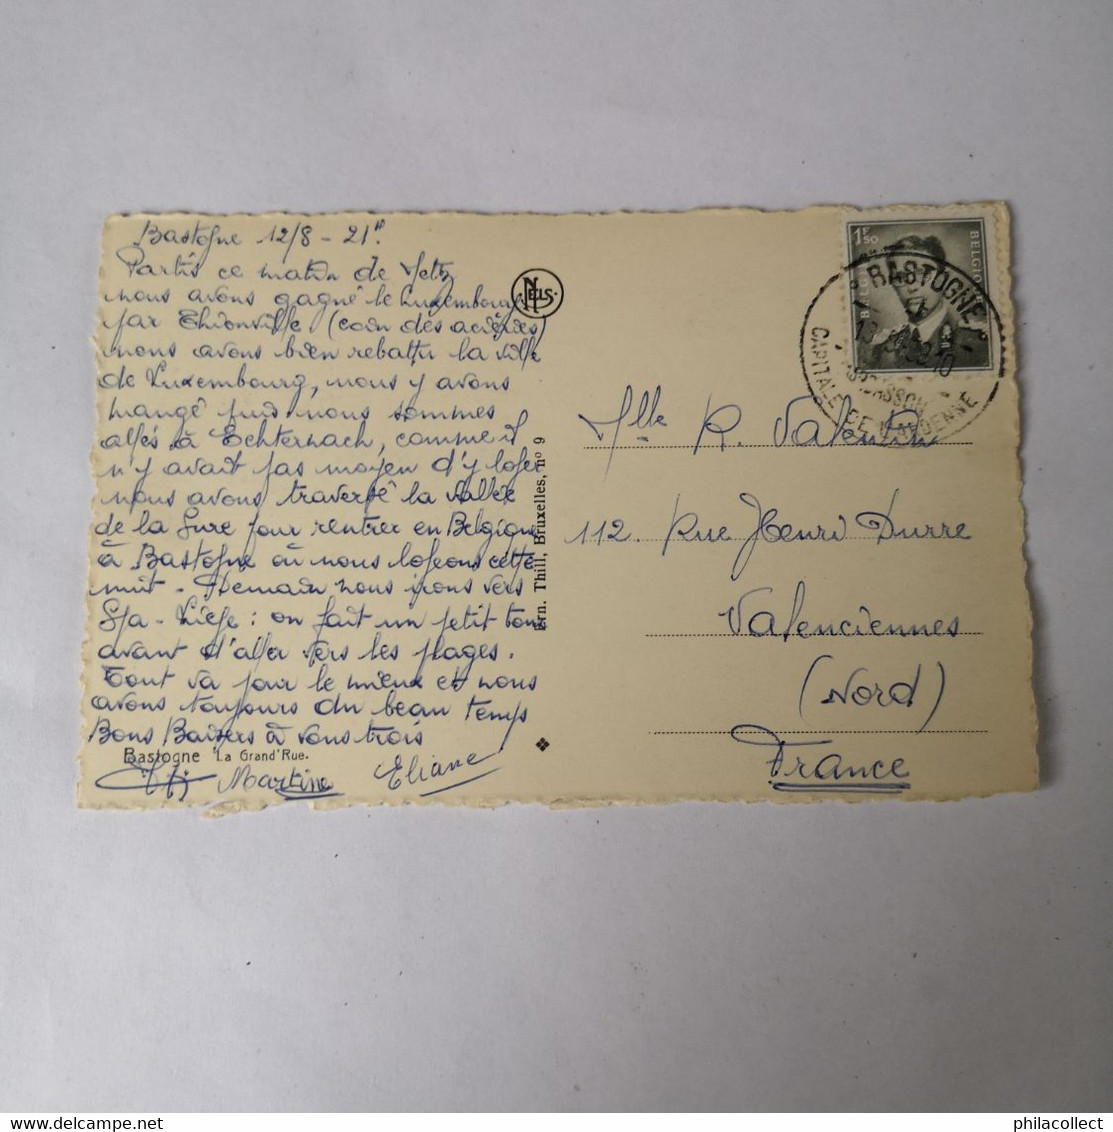 Bastogne 12/8 - 21h.
Partis ce matin de Metz
nous avons gagné le Luxembourg
par Thionville (coin des aciéries)
nous avons bien rebattu la ville
de Luxembourg, nous y avons
mangé puis nous sommes
allés à Echternach, comme il
n'y avait pas moyen d'y loger
nous avons traversé la vallée
de la Sure pour rentrer en Belgique
à Bastogne où nous logeons cette
nuit. Demain nous irons vers
Spa - Liège : on fait un petit tour
avant d'aller vers les plages.
Tout va pour le mieux et nous
avons toujours du beau temps
Bons Baisers à vous trois
Bastogne La Grand'Rue.
Martine Eliane
NELS
Ern. Thill, Bruxelles, nº 9
1F50
BELGIQUE
BELGIE
BASTOGNE
CAPITALE DE L'ARDENNE
Mlle R. Valentin
112. Rue Henri Durre
Valenciennes
(Nord)
France
philacollect